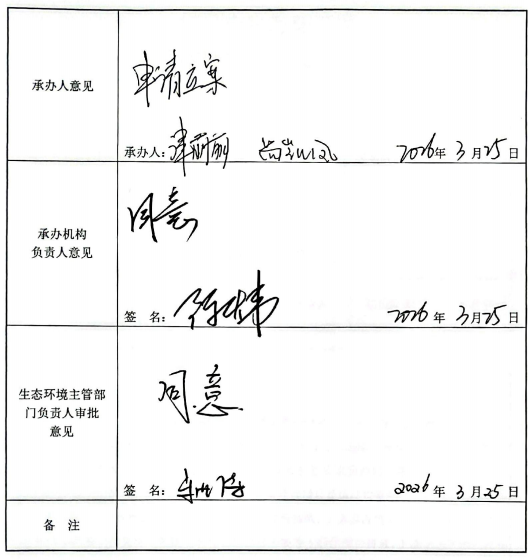 承办人意见
申请立案
承办人：
2026年3月25日
承办机构
负责人意见
同意
签 名：
2026年3月25日
生态环境主管部
门负责人审批
意见
同意
签 名：
2026年3月25日
备 注